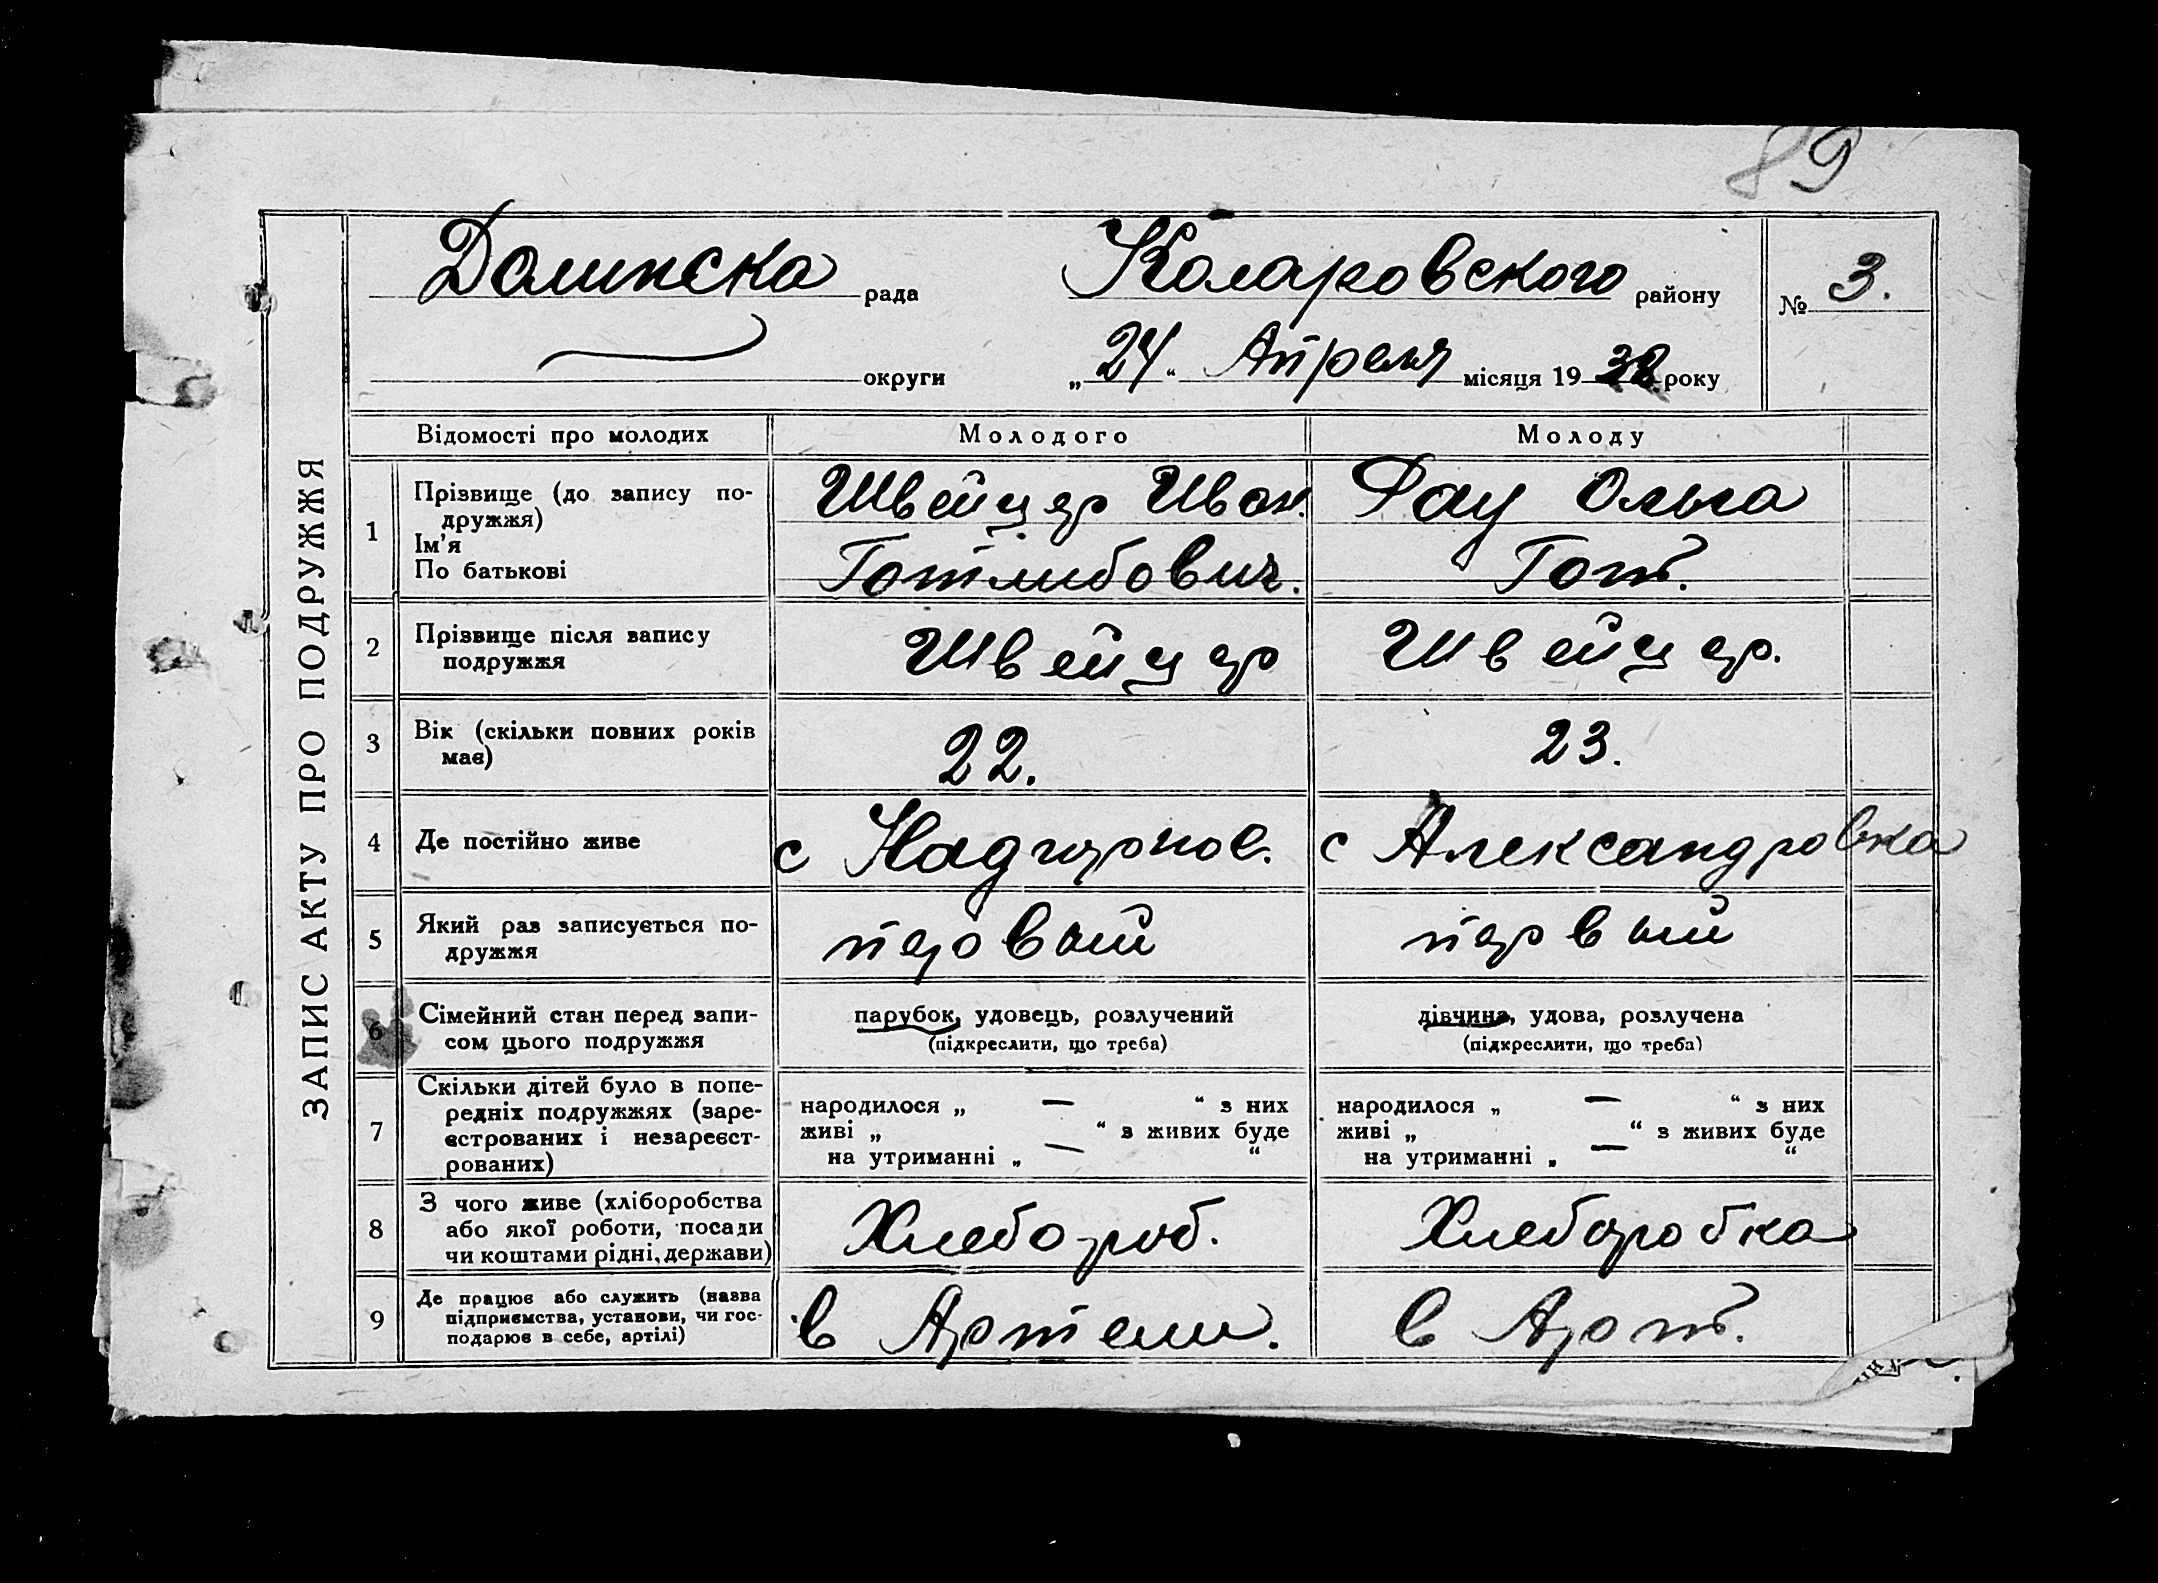 89
ЗАПИС АКТУ ПРО ПОДРУЖЖЯ
Долинска рада Коларовского району № 3.
округи „24“ Апреля місяця 1932 року
Відомості про молодих Молодого Молоду
1 Прізвище (до запису по-
дружжя)
Ім'я
По батькові
Швейцер Иван. Рау Ольга
Готлибович. Гот.
2 Прізвище після запису
подружжя
Швейцер Швейцер.
3 Вік (скільки повних років
має)
22. 23.
4 Де постійно живе с Надеждов. с Александровка
5 Який раз записується по-
дружжя
первый первый
6 Сімейний стан перед запи-
сом цього подружжя
парубок, удовець, розлучений
(підкреслити, що треба)
дівчина, удова, розлучена
(підкреслити, що треба)
7 Скільки дітей було в попе-
редніх подружжях (заре-
єстрованих і незареєст-
рованих)
народилося „ — “ з них
живі „ “ з живих буде
на утриманні „ — “
народилося „ — “ з них
живі „ “ з живих буде
на утриманні „ — “
8 З чого живе (хліборобства
або якої роботи, посади
чи коштами рідні, держави)
Хлебороб. Хлеборобка
9 Де працює або служить (назва
підприємства, установи, чи гос-
подарює в себе, артілі)
в Артели. в Арт.